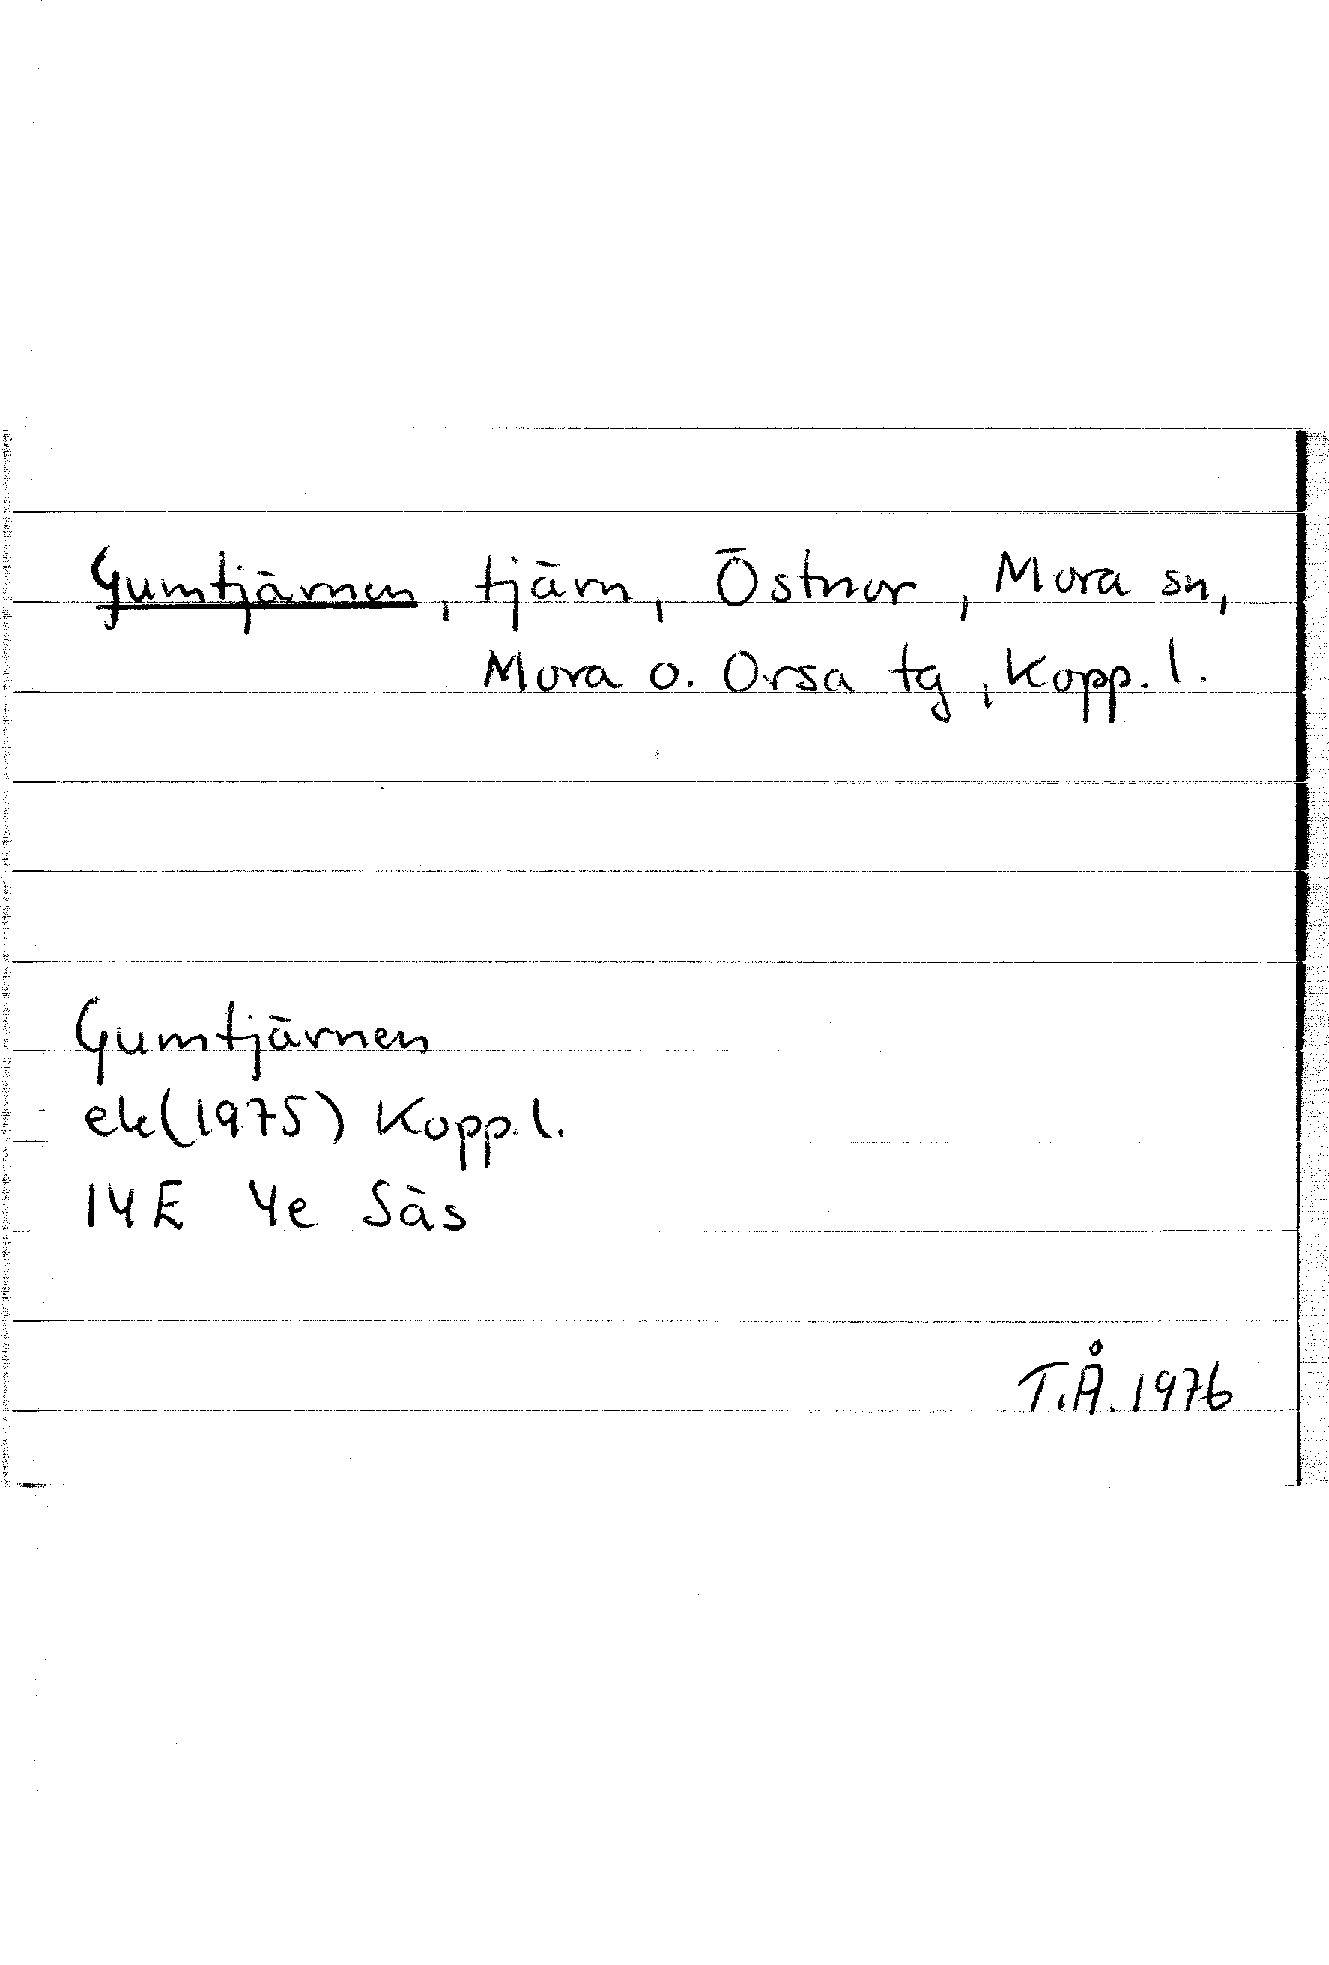 Gumtjärnen, tjärn, Östnor, Mora sn,
Mora o. Orsa tg, Kopp. l.
Gumtjärnen
ek(1975) Kopp. l.
14E 4e Säs
T.Å. 1976